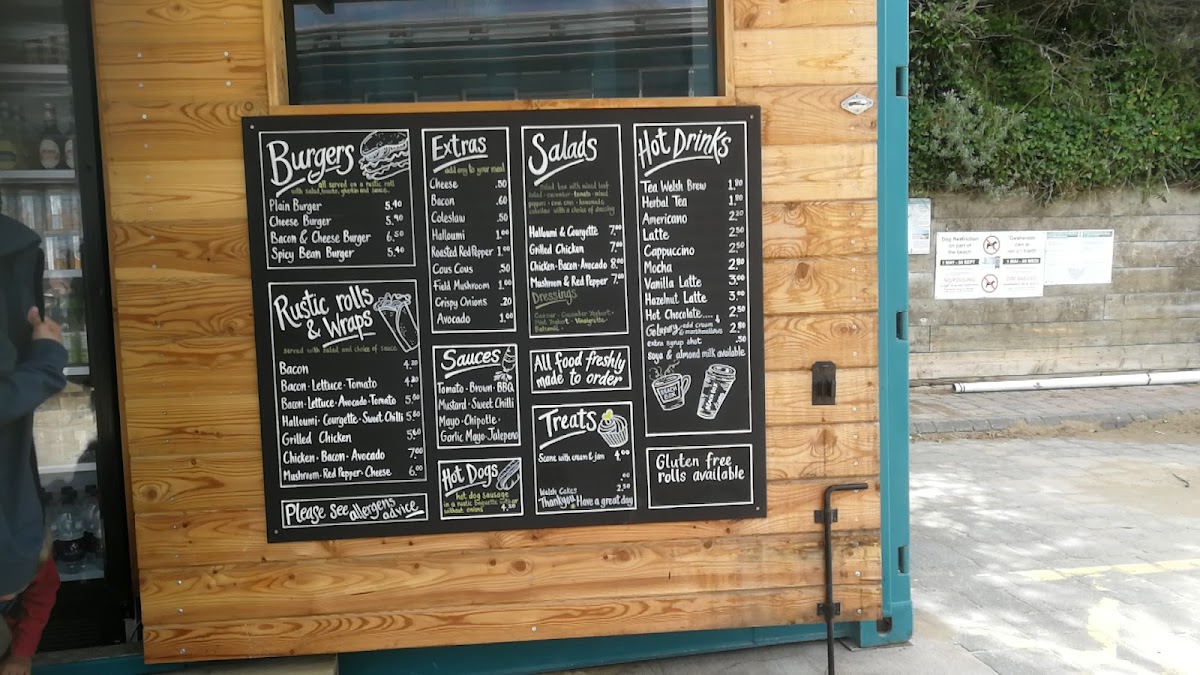 Burgers
all served on a rustic roll
with salad, tomato, gherkin and sauce.
Plain Burger 5.40
Cheese Burger 5.90
Bacon & Cheese Burger 6.50
Spicy Bean Burger 5.40
Rustic rolls
& Wraps
served with salad and choice of sauce
Bacon 4.20
Bacon-Lettuce-Tomato 4.80
Bacon-Lettuce-Avocado-Tomato 5.80
Halloumi-Courgette-Sweet Chilli 5.80
Grilled Chicken 5.80
Chicken-Bacon-Avocado 7.00
Mushroom-Red Pepper-Cheese 6.00
Please see allergens advice
Extras
add any to your meal
Cheese .50
Bacon .60
Coleslaw .50
Halloumi 1.00
Roasted Red Pepper 1.00
Cous Cous .50
Field Mushroom 1.00
Crispy Onions .20
Avocado 1.00
Sauces
Tomato-Brown-BBQ
Mustard-Sweet Chilli
Mayo-Chipotle-
Garlic Mayo-Jalepeno
Hot Dogs
hot dog sausage
in a rustic baguette with or
without onions 4.50
Salads
Salad box with mixed leaf
salad - cucumber - tomato - mixed
peppers - cous cous - homemade
coleslaw with a choice of dressing
Halloumi & Courgette 7.00
Grilled Chicken 7.00
Chicken-Bacon-Avocado 8.00
Mushroom & Red Pepper 7.00
Dressings
Caesar - Cucumber Yoghurt -
Mint Yoghurt - Vinaigrette -
Balsamic -
All food freshly
made to order
Treats
Scone with cream & jam 4.00
.00
Welsh Cakes 2.50
Thankyou Have a great day
Hot Drinks
Tea Welsh Brew 1.80
Herbal Tea 1.80
Americano 2.20
Latte 2.50
Cappuccino 2.50
Mocha 2.80
Vanilla Latte 3.00
Hazelnut Latte 3.00
Hot Chocolate.... 2.50
Galaxy add cream & marshmallows 2.80
extra syrup shot .50
Soya & almond milk available
BEACH
Gluten free
rolls available
Dog Restriction
on part of
the beach
1 MAY - 30 SEPT